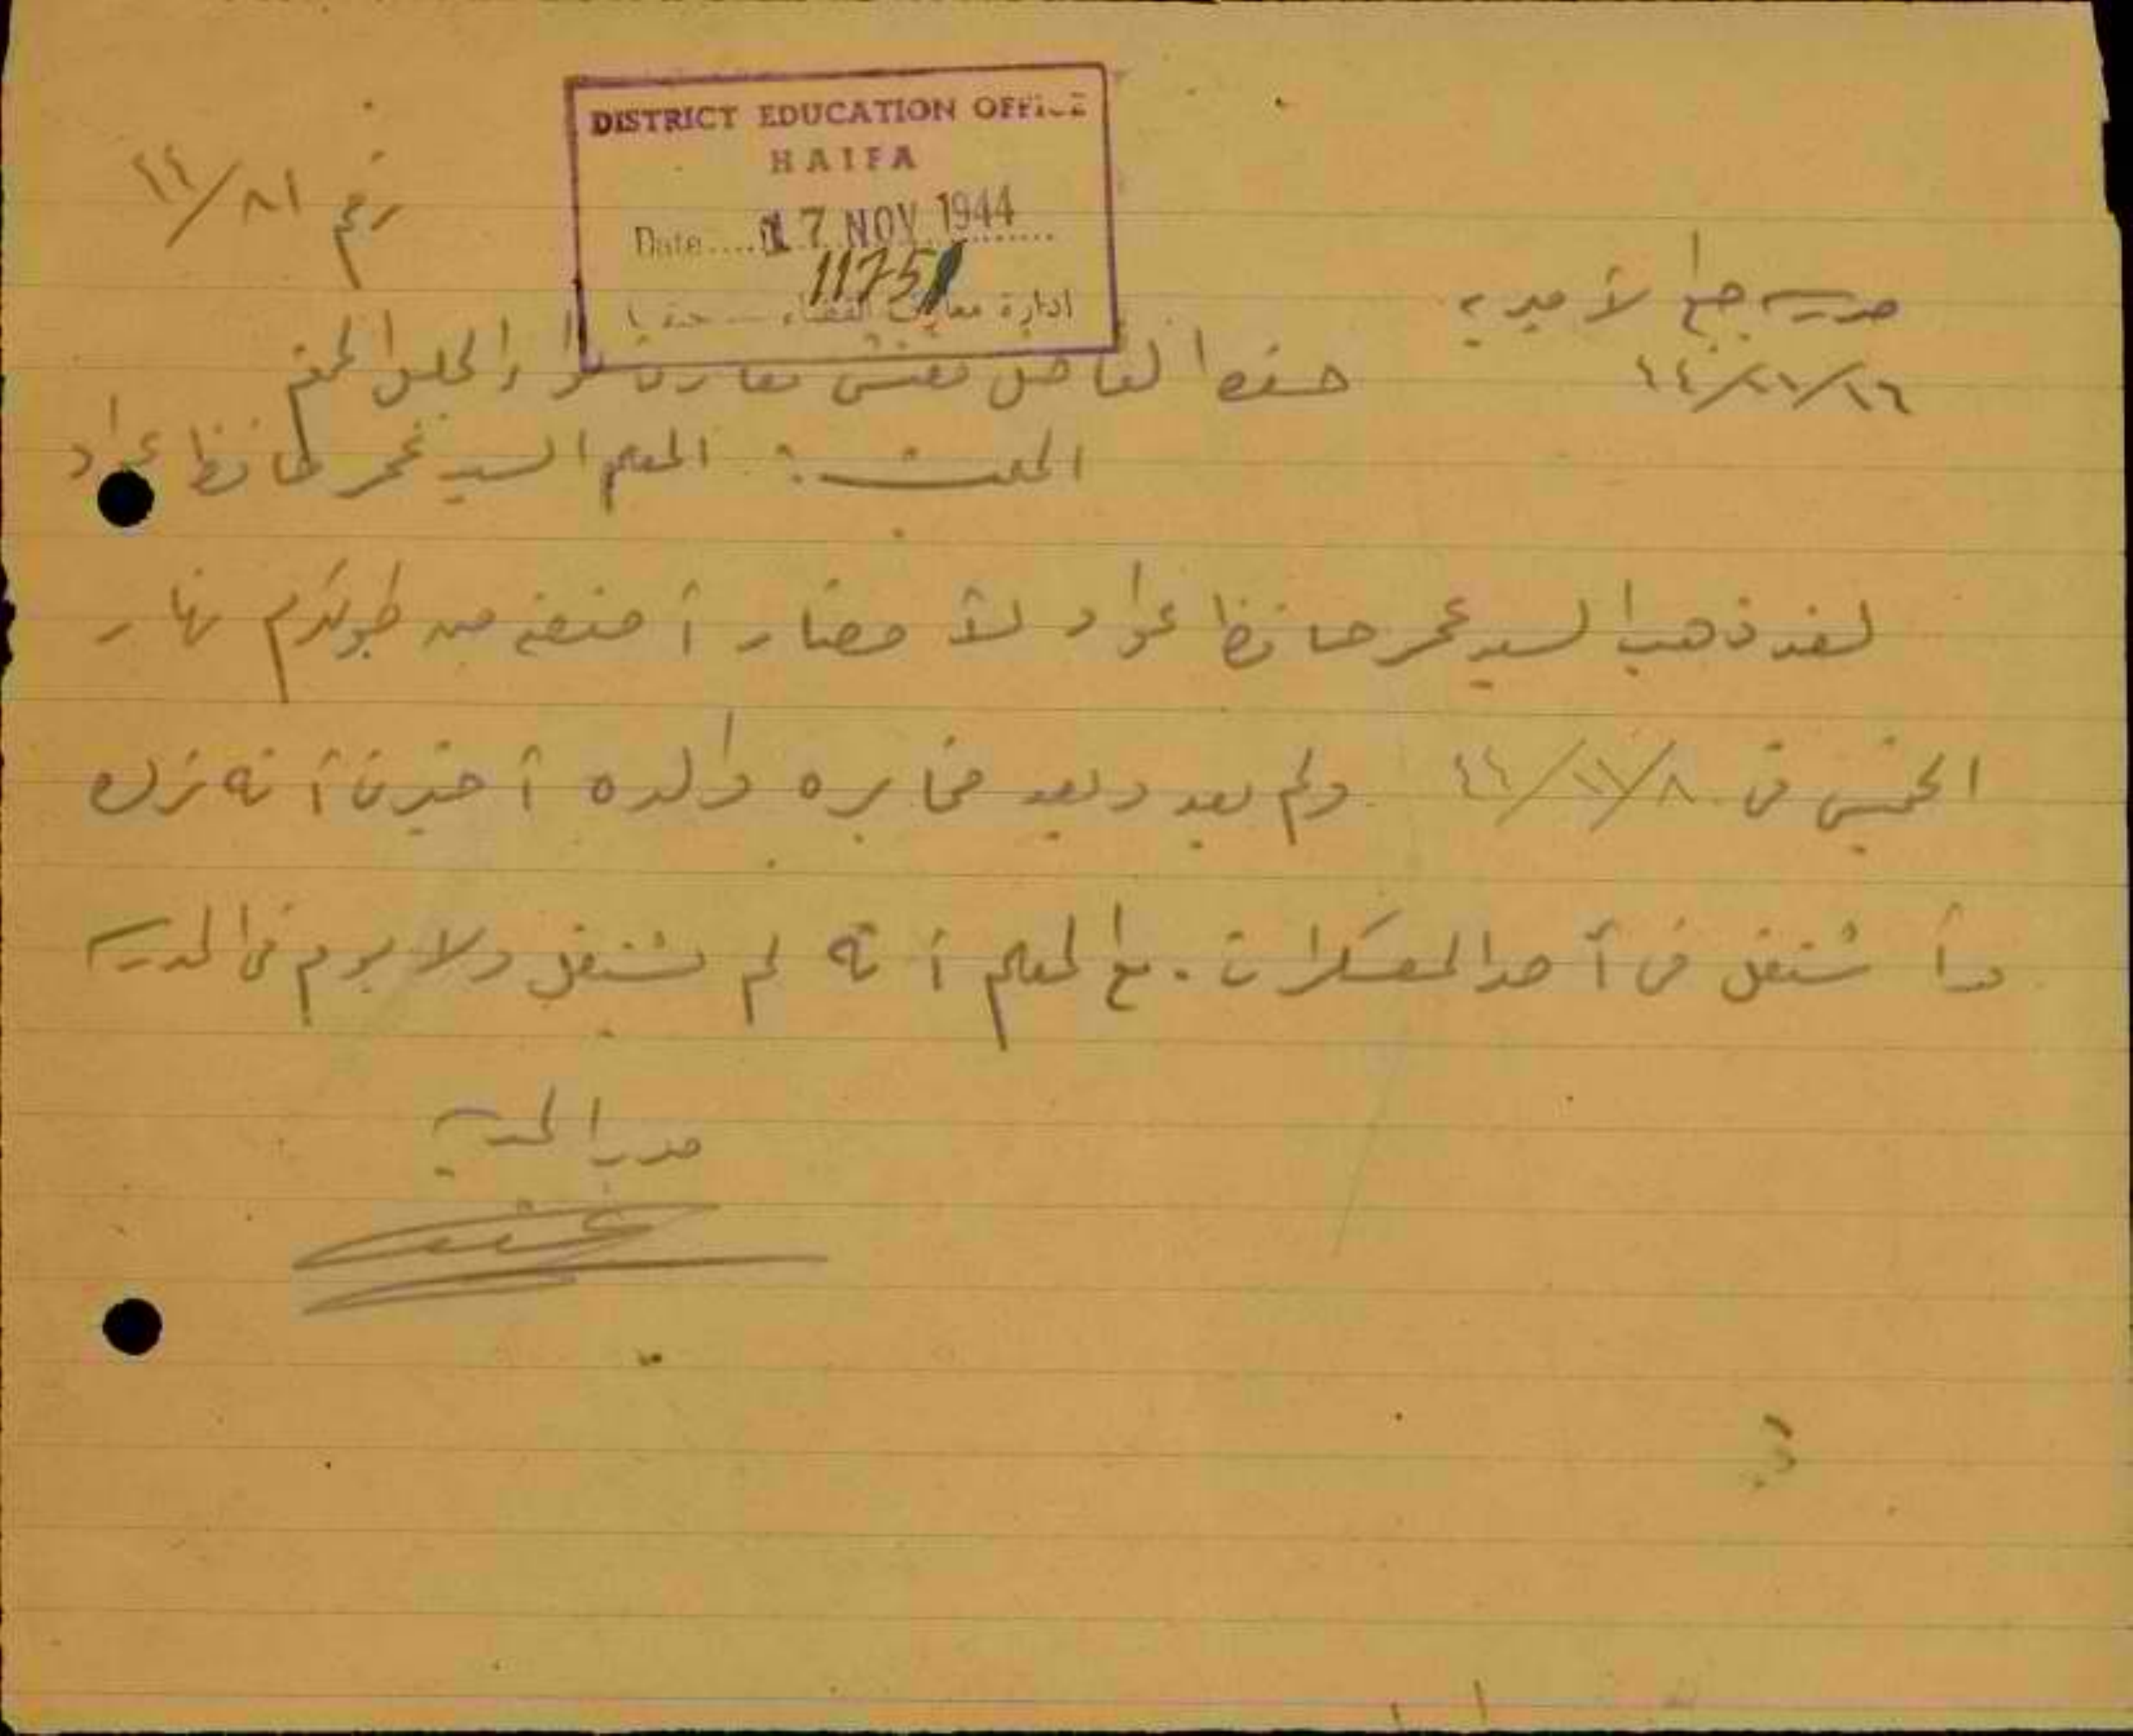 DISTRICT EDUCATION OFFICE
HAIFA
Date.... 17 NOV 1944
11751
ادارة معارف القضاء — حيفا
رقم ٤٤/٨١
مدرسة جبع الأميرية
٤٤/١١/١٦
حضرة الفاضل مفتش معارف لواء الجليل المحترم
المبحث : المعلم السيد عمر حافظ عواد
لقد ذهب السيد عمر حافظ عواد لأحضار أمتعته من طولكرم نهار
الخميس في ٤٤/١١/٨ ولم يعد وبعد مخابرة والده أخبرنا أنه ترك
وبدأ يشتغل في أحد المعسكرات . مع العلم أنه لم يشتغل ولا يوم في المدرسة
مدير المدرسة